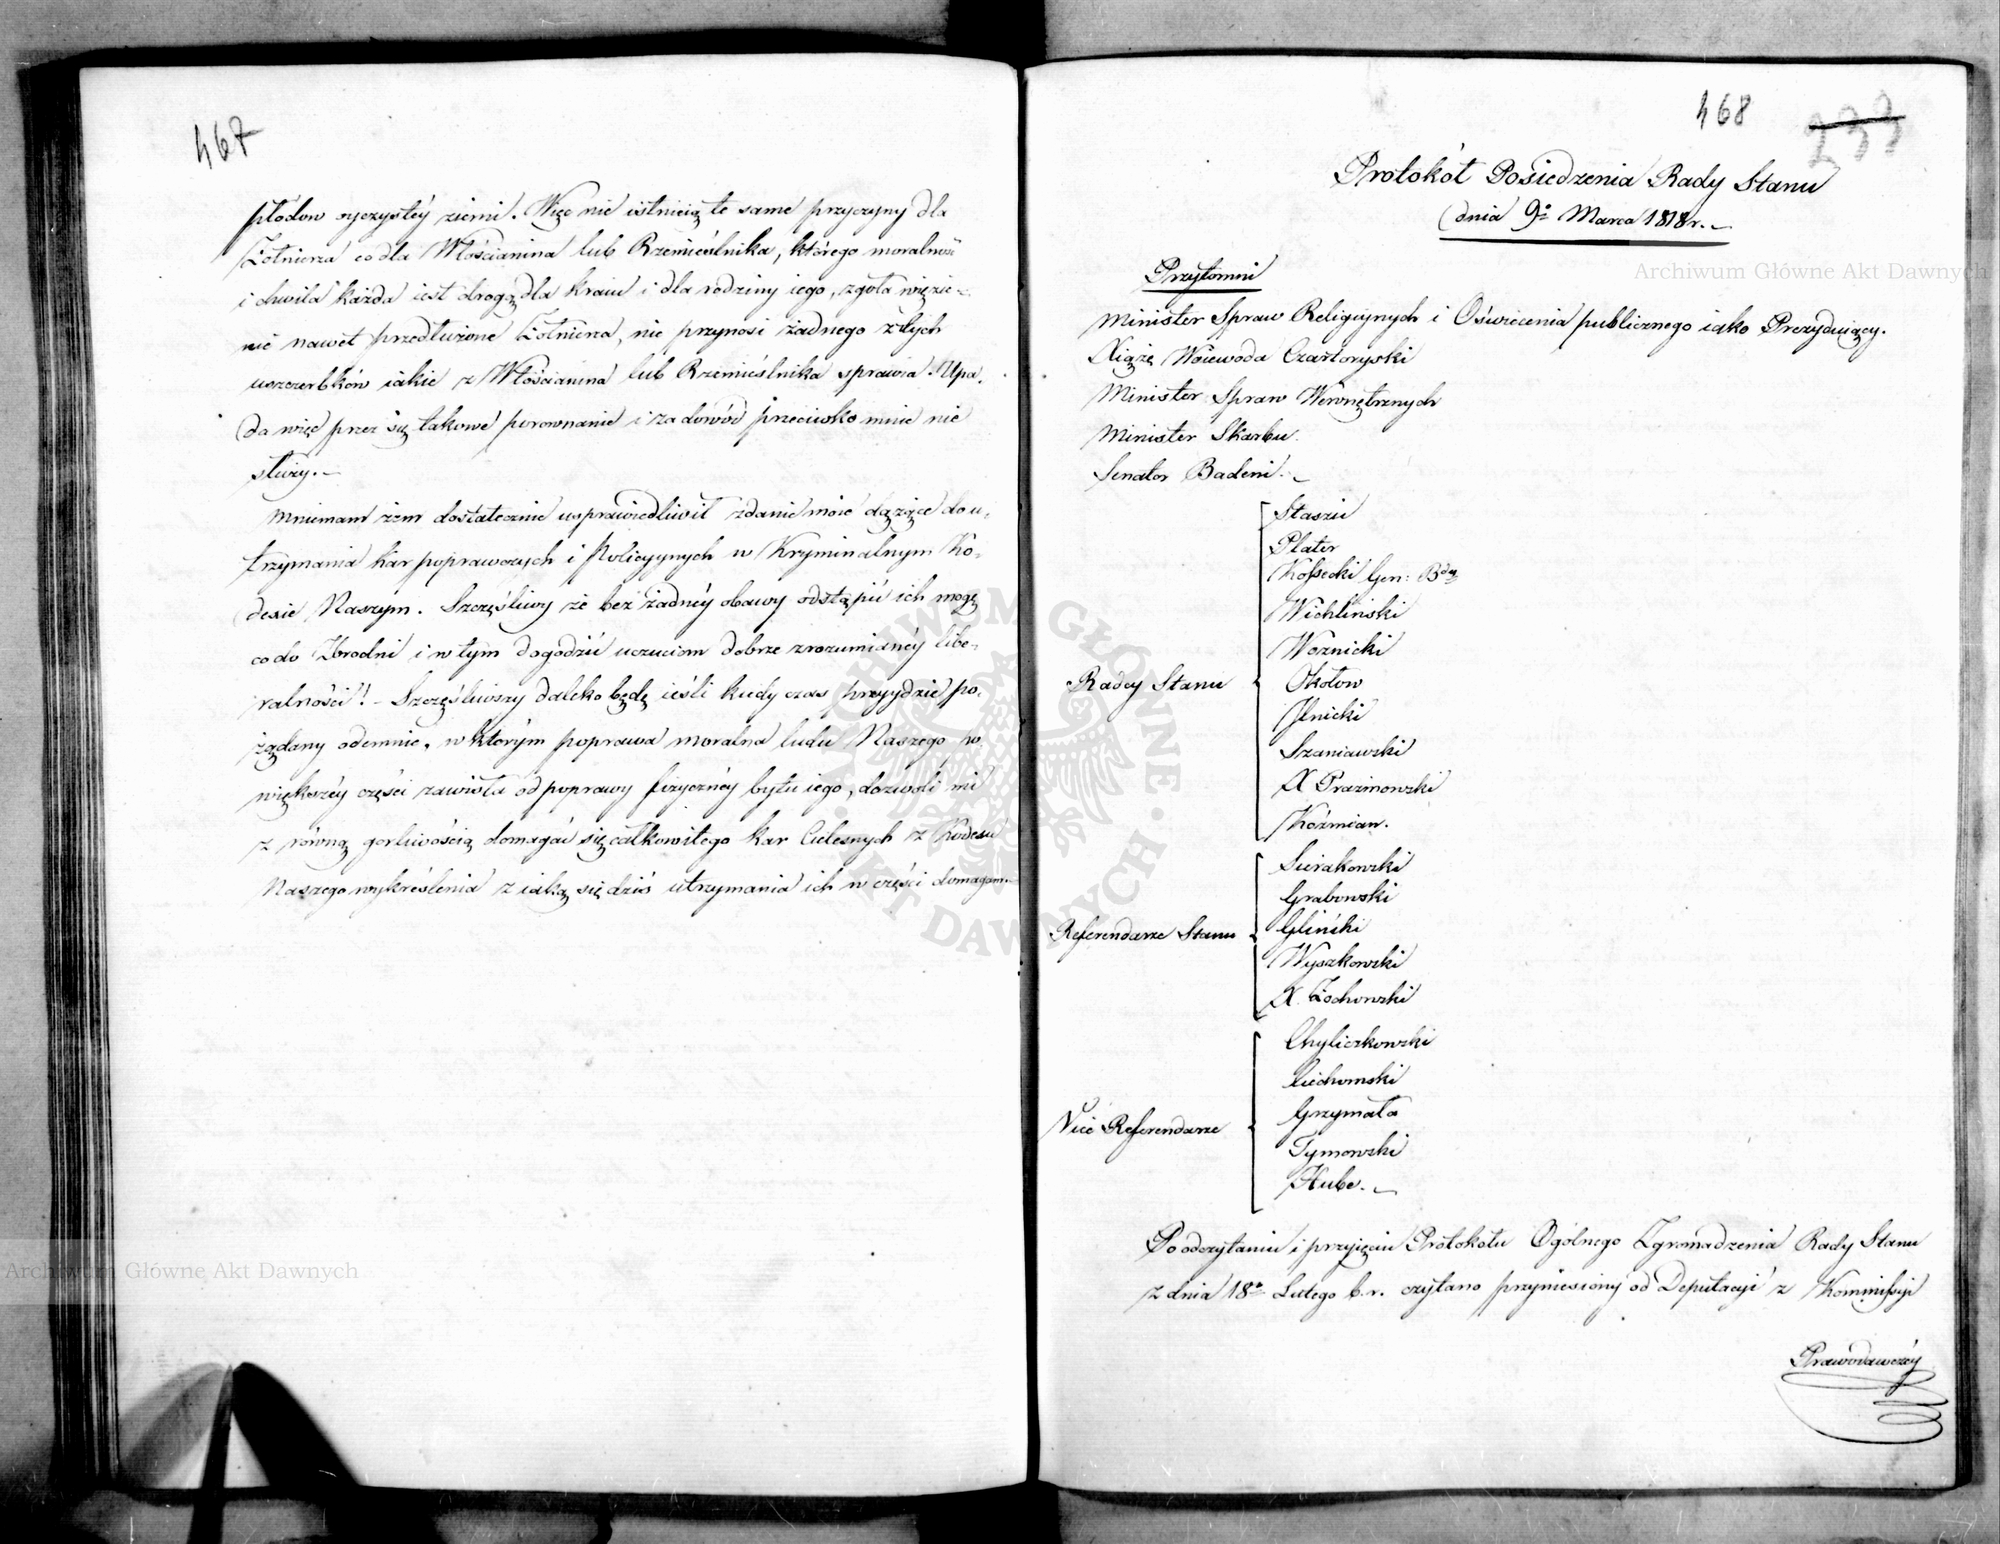 467
płodów oyczystéy ziemi. Więc nie istnieią te same przyczyny dla
Żołnierza co dla Włościanina lub Rzemieślnika, którego moralność
i chwila każda iest drogą dla kraiu i dla rodziny iego, zgoła więzie-
nie nawet przedłużone Żołnierza, nie przynosi żadnego z tych
uszczerbków iakie z Włościanina lub Rzemieślnika sprawia. Upa-
da więc przez się takowe porownanie i za dowód przeciwko mnie nie
służy.
Mniemam żem dostatecznie usprawiedliwił zdanie moie dążące do u-
trzymania kar poprawczych i Policyynych w Kryminalnym Ko-
dexie Naszym. Szczęśliwy że bez żadnéy obawy odstąpić ich mogę
co do Zbrodni i w tym dogodzić uczuciom dobrze zrozumianéy libe-
ralności! - Szczęśliwszy daleko będę ieśli kiedy czas przyydzie po-
żądany odemnie, w którym poprawa moralna ludu Naszego w
większéy części zawisła od poprawy fizycznéy bytu iego, dozwoli mi
z równą gorliwością domagać się całkowitego kar Cielesnych z Kodexu
Naszego wykreślenia z iaką się dziś utrzymania ich w części domagam.
468 233
Protokół Posiedzenia Rady Stanu
dnia 9º Marca 1818 r.
Przytomni
Minister Spraw Religiynych i Oświecenia publicznego iako Prezyduiący.
Xiążę Woiewoda Czartoryski
Minister Spraw Wewnętrznych
Minister Skarbu
Senator Badeni.
Radcy Stanu
Staszic
Plater
Kossecki Gen: Bdy
Wichliński
Woźnicki
Okołow
Ilnicki
Szaniawski
X Prażmowski
Koźmian.
Referendarze Stanu
Sierakowski
Grabowski
Gliński
Wyszkowski
X. Żochowski
Vice Referendarze
Chyliczkowski
Ciechomski
Grzymała
Tymowski
Hube.
Po odczytaniu i przyięciu Protokołu Ogólnego Zgromadzenia Rady Stanu
z dnia 18º Lutego b. r. czytano przyniesiony od Deputacyi z Kommissyi
Prawodawczéy
Archiwum Główne Akt Dawnych
Archiwum Główne Akt Dawnych
ARCHIWUM GŁÓWNE AKT DAWNYCH